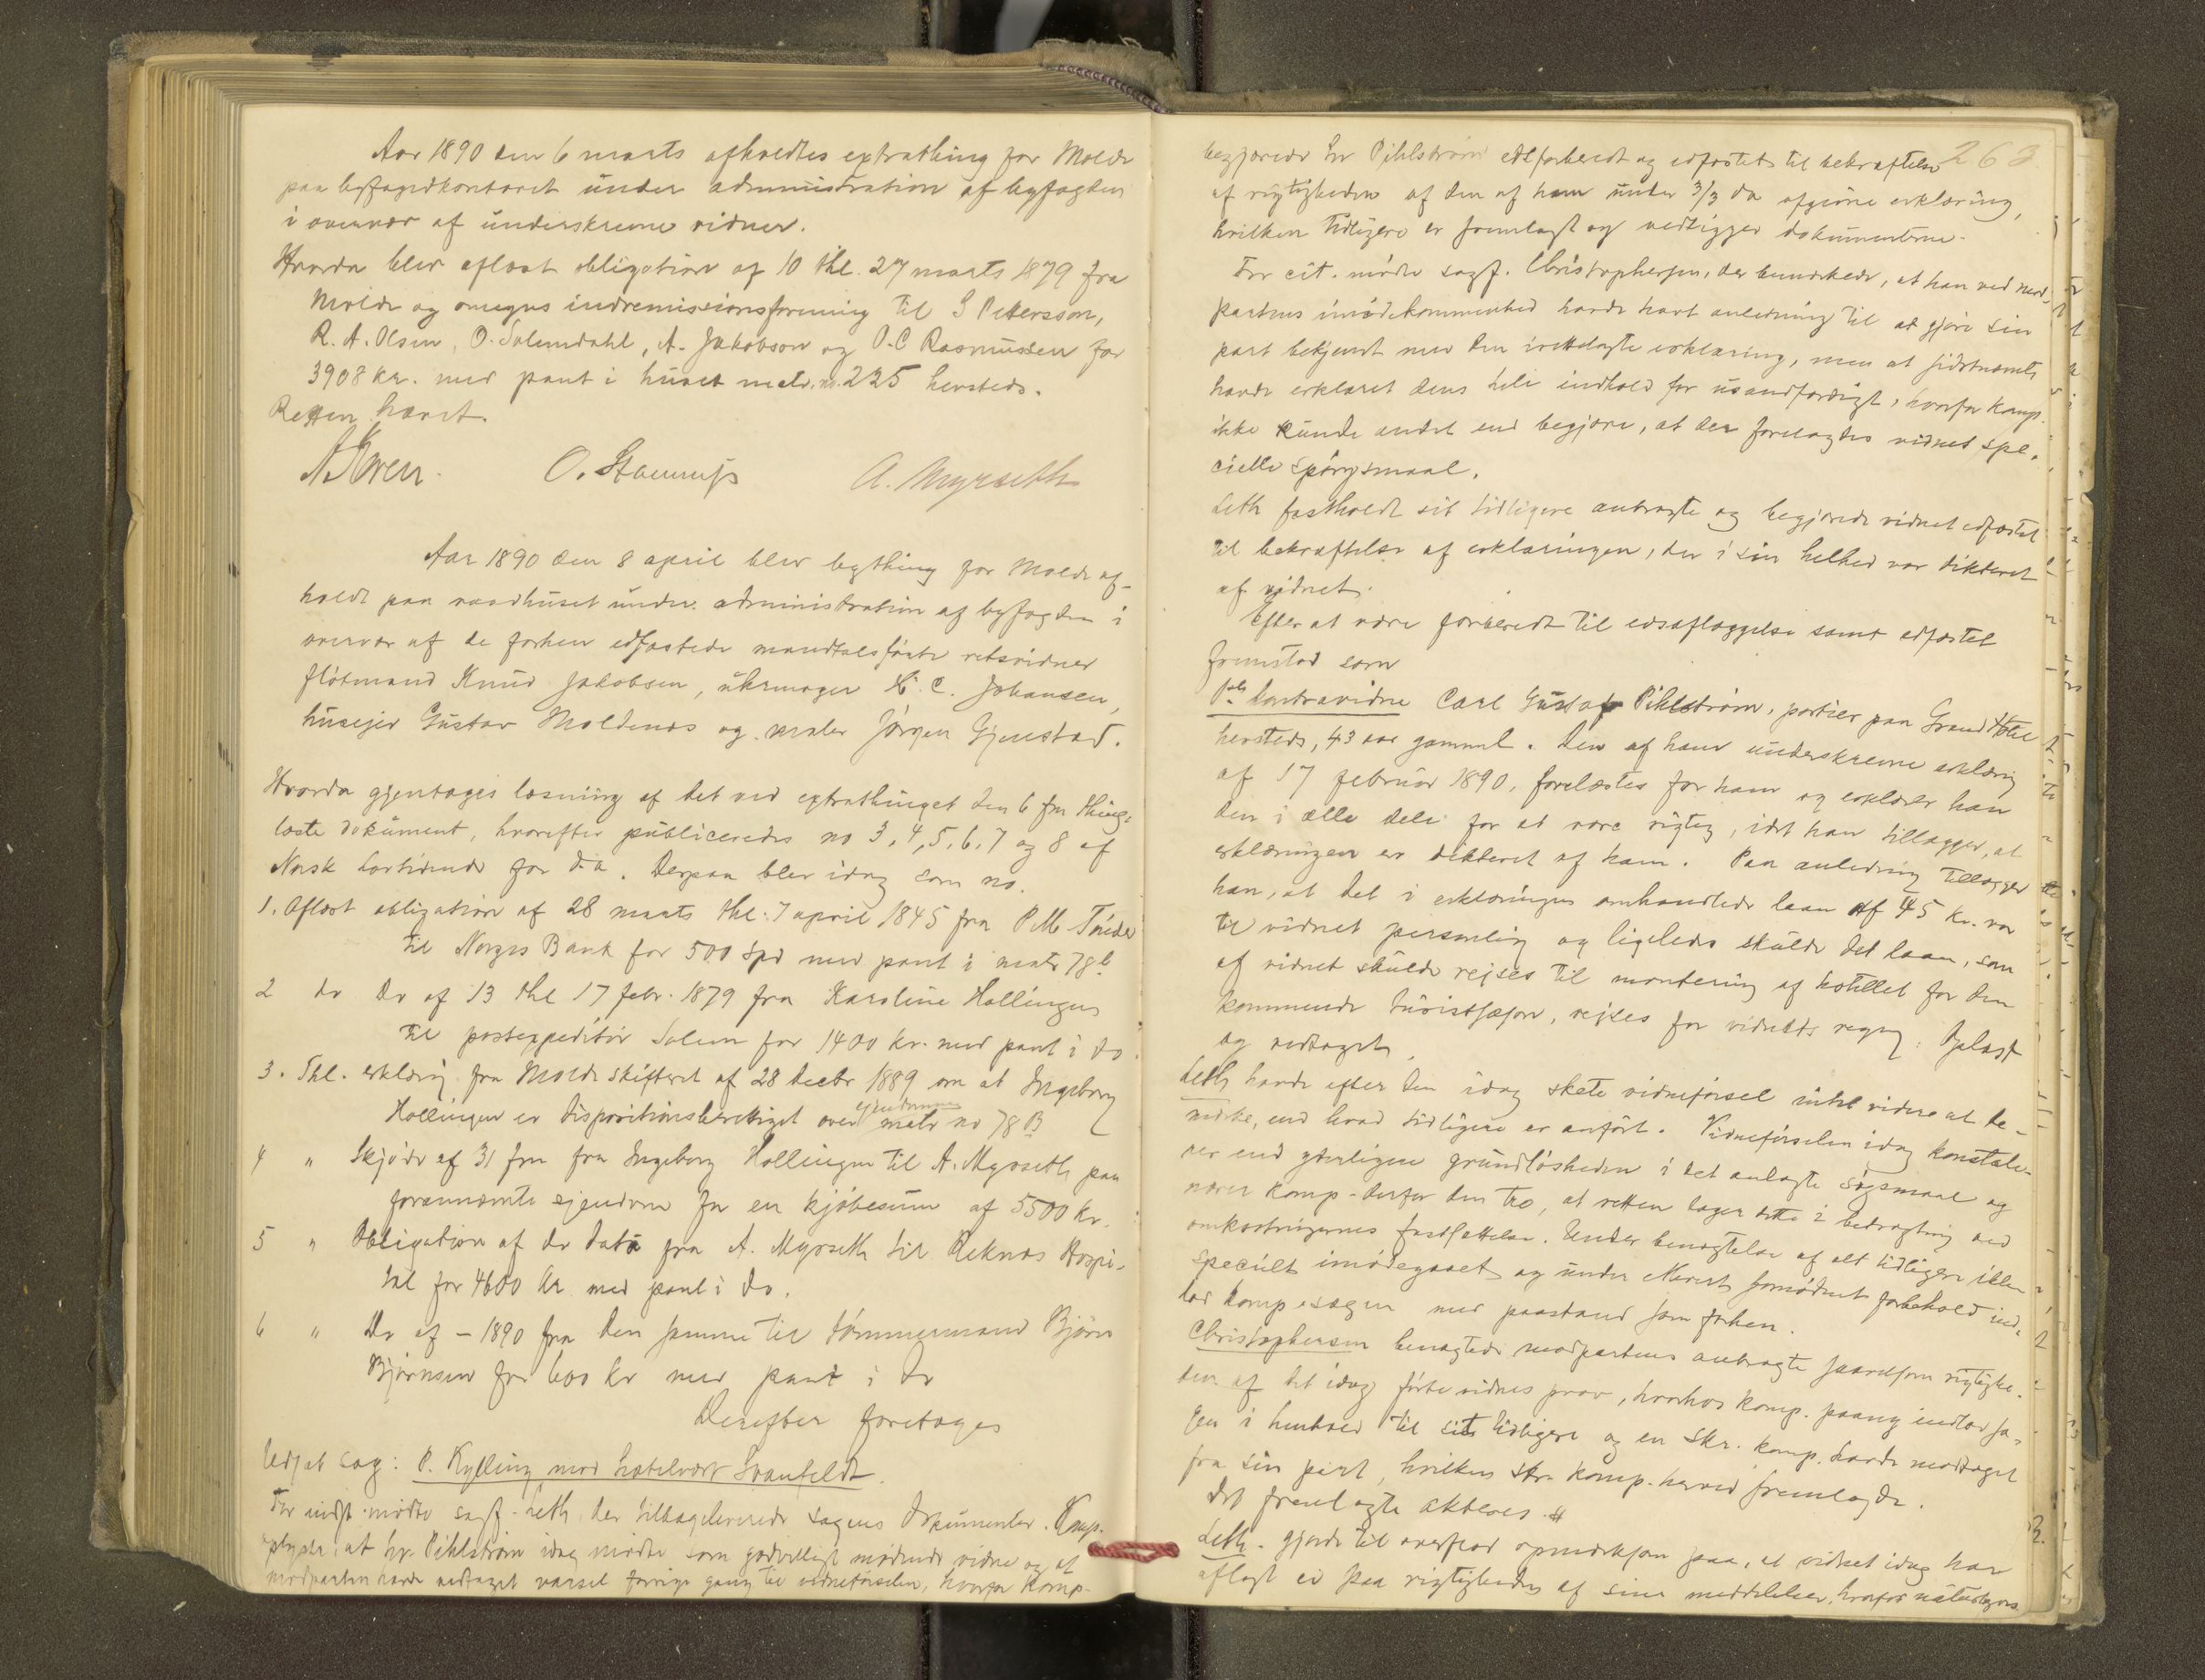 Aar 1890 den 6 marts afholdtes extrathing for Molde
paa byfogedkontoret under administration af byfogden
i overvær af underskrevne vidner.
Hvorda blev aflæst obligation af 10 thl. 27 marts 1879 fra
Molde og omegns indremissionsforening til S Pettersson,
R. A. Olsen, O. Solemdahl, A. Jakobson og O. C Rasmussen for
3908 kr. med pant i huset matr. no. 225 hersteds.
Retten hævet.
O. Stammes A. Myrseth
Aar 1890 den 8 april blev bything for Molde af-
holdt paa raadhuset under administration af byfogden i
overvær af de forhen edfæstede mandtalsførte retsvidner
fløtmand Knud Jakobsen, uhrmager H. C. Johansen,
huseier Gustav Moldenæs og maler Jørgen Gjenstad.
Hvorda gjentoges læsning af det ved extrathinget den 6 fm thing-
læste dokument, hvorefter publiceredes no 3, 4, 5, 6, 7 og 8 af
Norsk Lovtidende for d. a. Derpaa blev idag som no.
1. Aflæst obligation af 28 marts thl. 7 april 1845 fra P. M.
til Norges Bank for 500 spd med pant i matr 78b
2 do Do af 13 thl 17 febr. 1879 fra Karoline Hollingen
til postexpeditør Solem for 1400 kr. med pant i do.
3. Thl. erklæring fra Molde skifteret af 28 decbr 1889 om at Ingeborg
Hollingen er dispositionsberettiget over ejendommen matr no 78 B
4 " Skjøde af 31 fm fra Ingeborg Hollingen til A. Myrseth paa
forannævnte ejendom for en kjøbesum af 5500 kr.
5 " Obligation af do dato fra A. Myrseth til Reknæs Hospi-
tal for 4600 kr med pant i do.
6 " Do af - 1890 fra den samme til tømmermand Bjørn
Bjørnsen for 600 kr med pant i do
Derefter foretoges
Udsat sag: P. Kylling mod hotelvært Svanfeldt.
For indst. mødte sagf. Leth der tilbageleverede sagens dokumenter. Komp.
oplyste, at hr. Pihlstrøm idag mødte som godvilligt mødende vidne og at
modparten havde vedtaget varsel forrige gang til vidneførselen, hvorfor komp.
263
begjærede hr Pihlstrøm edsforberedt og edfæstet til bekræftelse
af rigtigheden af den af ham under 3/3 da afgivne erklæring,
hvilken tidligere er fremlagt og vedligger dokumenterne.
For cit. mødte sagf. Christophersen, der bemærkede, at han ved mod-
partens imødekommenhed havde havt anledning til at gjøre sin
part bekjendt med den irettelagte erklæring, men at sidstnævnte
havde erklæret dens hele indhold for usandfærdigt, hvorfor komp.
ikke kunde andet end begjære, at der forelagdes vidnet spe-
cielle spørgsmaal.
Leth fastholdt sit tidligere anbragte og begjærede vidnet edfæstet
til bekræftelse af erklæringen, der i sin helhed var dikteret
af vidnet.
Efter at være forberedt til edsaflæggelse samt edfæstet
fremstod som
1ste kontravidne Carl Gustaf Pihlstrøm, portier paa Grand Hotel
hersteds, 43 aar gammel. Den af ham underskrevne erklæring
af 17 februar 1890, forelæstes for ham og erklærer han
den i alle dele for at være rigtig, idet han tillægger, at
erklæringen er dikteret af ham. Paa anledning tillægger
han, at det i erklæringen omhandlede laan af 45 kr. var
til vidnet personlig og ligeledes skulde det laan, som
af vidnet skulde rejses til montering af hotellet for den
kommende turistsæson, rejses for vidnets regning. Oplæst
og vedtaget.
Leth havde efter den idag skete vidneførsel intet videre at be-
mærke, end hvad tidligere er anført. Vidneførselen idag konstate-
rer end yderligere grundløsheden i det anlagte søgsmaal og
nærer komp. derfor den tro, at retten tager dette i betragtning ved
omkostningernes fastsættelse. Under benægtelse af alt tidligere ikke
specielt imødegaaet og under ethvert fornødent forbehold ind-
lod komp. sagen med paastand som forhen.
Christophersen benægtede modpartens anbragte saavelsom rigtighe-
den af det idag førte vidnes prov, hvorhos komp. paany indlod sa-
gen i henhold til sit tidligere og en skr. komp. havde modtaget
fra sin part, hvilken skr. komp. herved fremlagde.
Det fremlagte akteres #
Leth. gjorde til overflod opmærksom paa, at vidnet idag har
aflagt ed paa rigtigheden af sine meddelelser, hvorfor naturligvis